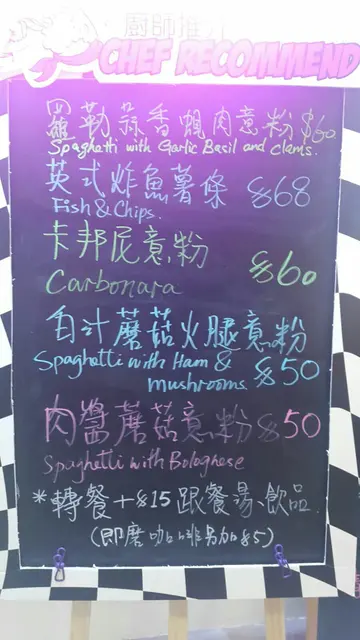 廚師推介
CHEF RECOMMEND
羅勒蒜香蜆肉意粉 $60
Spaghetti with Garlic Basil and Clams.
英式炸魚薯條 $68
Fish & Chips.
卡邦尼意粉 $60
Carbonara
白汁蘑菇火腿意粉
Spaghetti with Ham &
mushrooms $50
肉醬蘑菇意粉 $50
Spaghetti with Bolognese
*轉餐+$15跟餐湯、飲品
(即磨咖啡另加$5)